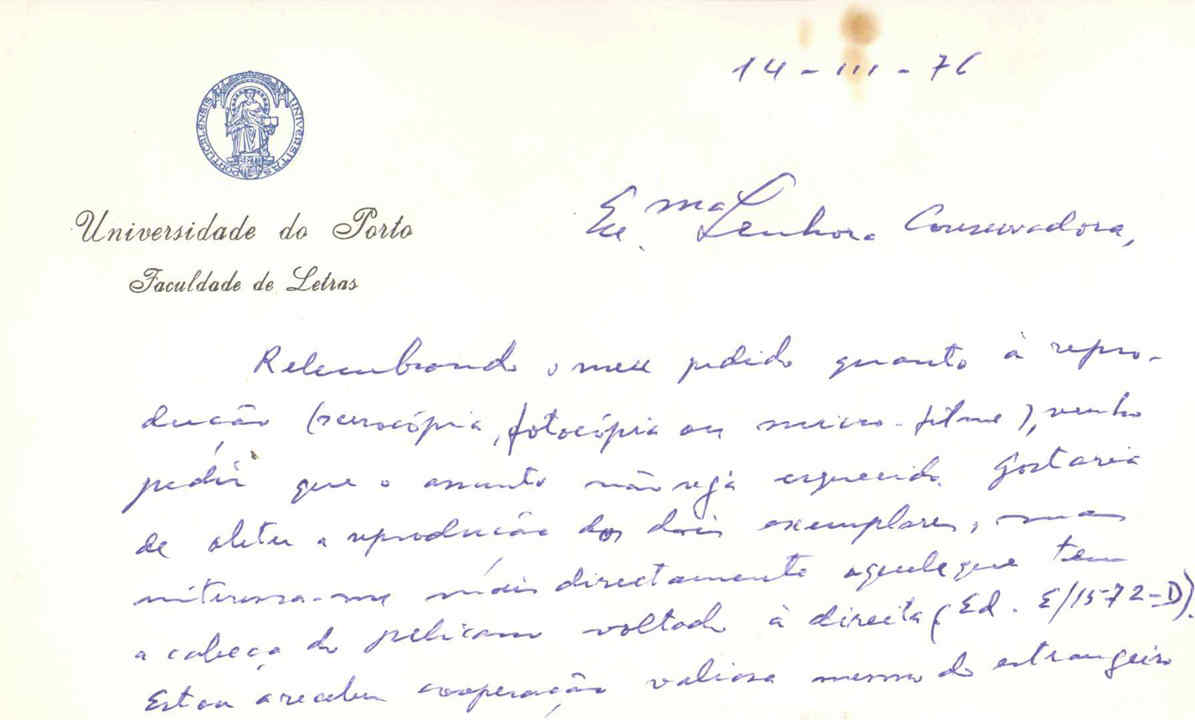 14-III-76
PORTUCALENSIS UNIVERSITAS
Universidade do Porto
Faculdade de Letras
Exc.ma Senhora Conservadora,
Relembrando o meu pedido quanto à repro-
dução (xerocópia, fotocópia ou micro-filme), venho
pedir que o assunto não seja esquecido. Gostaria
de obter a reprodução dos dois exemplares, mas
interessa-me mais directamente aquele que tem
a cabeça do pelicano voltada à direita (Ed. E/1572-D).
Estou a receber cooperação valiosa mesmo do estrangeiro